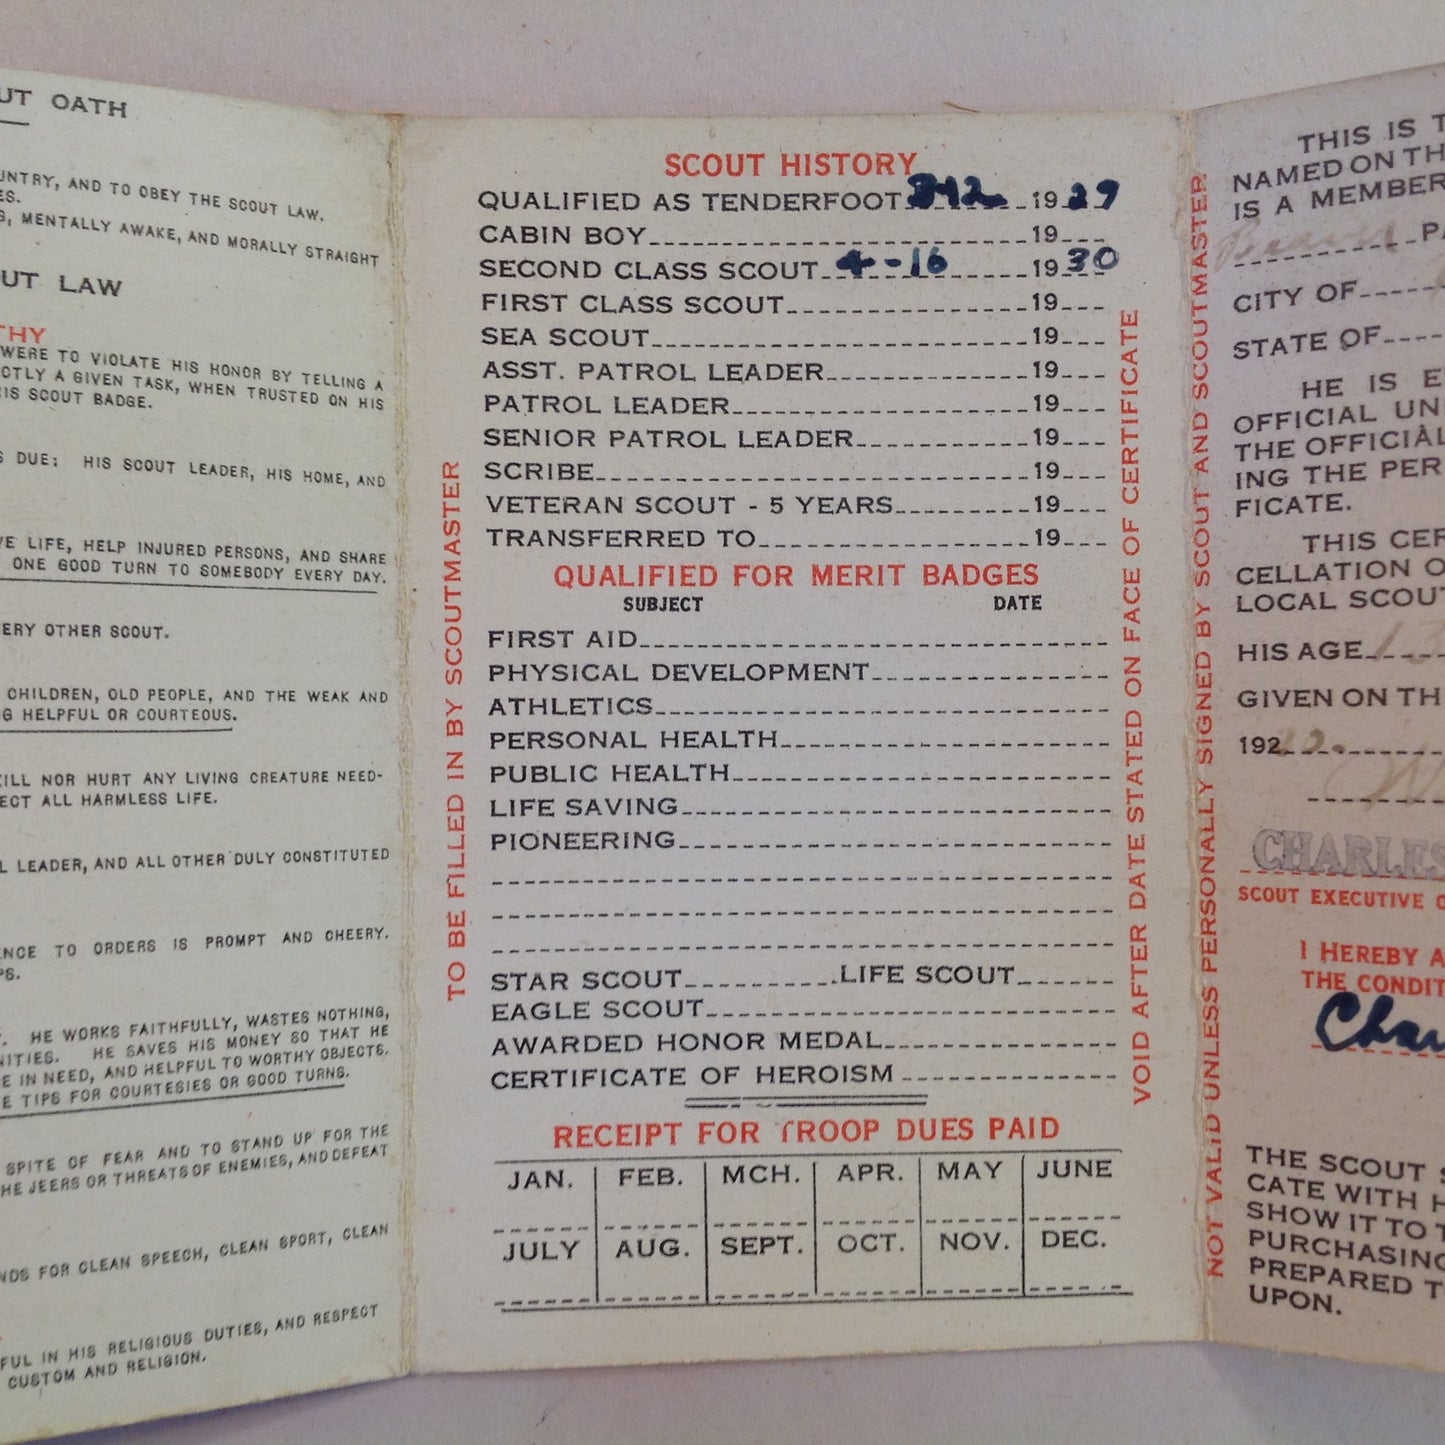 OATH
AND TO OBEY THE SCOUT LAW.
MENTALLY AWAKE, AND MORALLY STRAIGHT
LAW
WERE TO VIOLATE HIS HONOR BY TELLING A
A GIVEN TASK, WHEN TRUSTED ON HIS
SCOUT BADGE.
DUE: HIS SCOUT LEADER, HIS HOME, AND
LIFE, HELP INJURED PERSONS, AND SHARE
ONE GOOD TURN TO SOMEBODY EVERY DAY.
OTHER SCOUT.
CHILDREN, OLD PEOPLE, AND THE WEAK AND
HELPFUL OR COURTEOUS.
NOR HURT ANY LIVING CREATURE NEED-
ALL HARMLESS LIFE.
LEADER, AND ALL OTHER DULY CONSTITUTED
TO ORDERS IS PROMPT AND CHEERY.
HE WORKS FAITHFULLY, WASTES NOTHING,
HE SAVES HIS MONEY SO THAT HE
IN NEED, AND HELPFUL TO WORTHY OBJECTS.
TIPS FOR COURTESIES OR GOOD TURNS.
SPITE OF FEAR AND TO STAND UP FOR THE
JEERS OR THREATS OF ENEMIES, AND DEFEAT
FOR CLEAN SPEECH, CLEAN SPORT, CLEAN
IN HIS RELIGIOUS DUTIES, AND RESPECT
CUSTOM AND RELIGION.
TO BE FILLED IN BY SCOUTMASTER
SCOUT HISTORY
QUALIFIED AS TENDERFOOT 3-12 1929
CABIN BOY 19
SECOND CLASS SCOUT 4-16 1930
FIRST CLASS SCOUT 19
SEA SCOUT 19
ASST. PATROL LEADER 19
PATROL LEADER 19
SENIOR PATROL LEADER 19
SCRIBE 19
VETERAN SCOUT - 5 YEARS 19
TRANSFERRED TO 19
QUALIFIED FOR MERIT BADGES
SUBJECT DATE
FIRST AID
PHYSICAL DEVELOPMENT
ATHLETICS
PERSONAL HEALTH
PUBLIC HEALTH
LIFE SAVING
PIONEERING
STAR SCOUT LIFE SCOUT
EAGLE SCOUT
AWARDED HONOR MEDAL
CERTIFICATE OF HEROISM
RECEIPT FOR TROOP DUES PAID
JAN. FEB. MCH. APR. MAY JUNE
JULY AUG. SEPT. OCT. NOV. DEC.
VOID AFTER DATE STATED ON FACE OF CERTIFICATE
NOT VALID UNLESS PERSONALLY SIGNED BY SCOUT AND SCOUTMASTER
THIS IS
NAMED ON
IS A MEMBER
CITY OF
STATE OF
HE IS
OFFICIAL
THE OFFICIAL
ING THE
FICATE.
THIS
CELLATION
LOCAL
HIS AGE 13
GIVEN ON
192
CHARLES
SCOUT EXECUTIVE
I HEREBY
THE
THE SCOUT
CATE WITH
SHOW IT TO
PURCHASING
PREPARED
UPON.